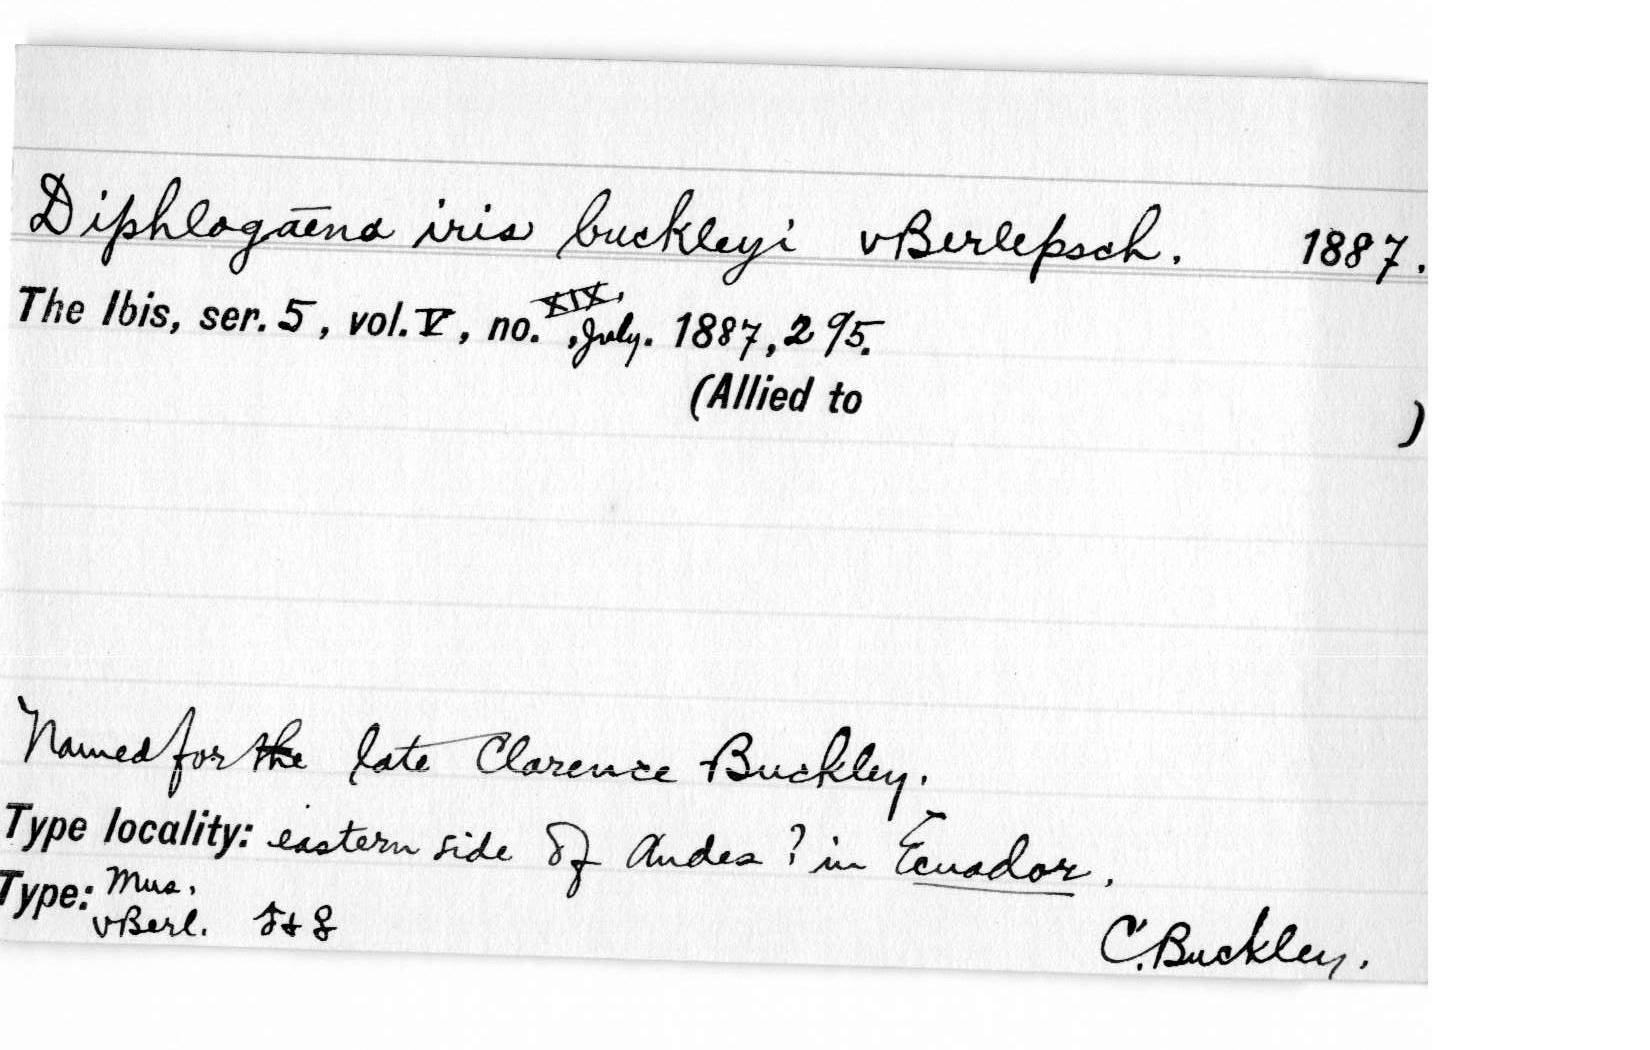 Diphlogāena iris buckleyi vBerlepsch. 1887.
The Ibis, ser. 5, vol. V, no. XIX, July. 1887, 295.
(Allied to )
Named for the late Clarence Buckley.
Type locality: eastern side of Andes ? in Ecuador.
Type: Mus.
vBerl.
C. Buckley.